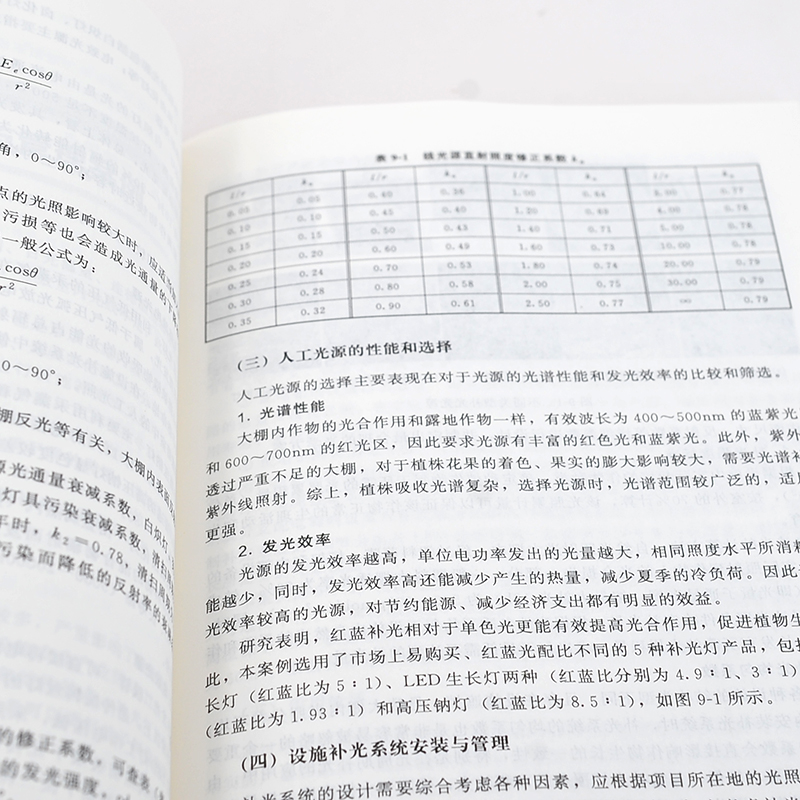 E_e cosθ
r²
角，0～90°；
点的光照影响较大时，应适当
污损等也会造成光通量的下
一般公式为：
cosθ
r²
0～90°；
棚反光等有关，大棚内表面
光通量衰减系数，白炽灯
灯具污染衰减系数，清扫
平时，k₂＝0.78，清扫
污染而降低的反射率的
的修正系数，可查表
的发光强度，
表 9-1 线光源直射照度修正系数 k
l/r k l/r k l/r k l/r k
0.05 0.05 0.40 0.36 1.00 0.64 3.00 0.77
0.10 0.10 0.45 0.40 1.20 0.69 4.00 0.78
0.15 0.15 0.50 0.43 1.40 0.71 5.00 0.78
0.20 0.20 0.60 0.49 1.60 0.73 10.00 0.78
0.25 0.24 0.70 0.53 1.80 0.74 20.00 0.79
0.30 0.28 0.80 0.58 2.00 0.75 30.00 0.79
0.35 0.32 0.90 0.61 2.50 0.77 ∞ 0.79
（三）人工光源的性能和选择
人工光源的选择主要表现在对于光源的光谱性能和发光效率的比较和筛选。
1. 光谱性能
大棚内作物的光合作用和露地作物一样，有效波长为 400～500nm 的蓝紫光
和 600～700nm 的红光区，因此要求光源有丰富的红色光和蓝紫光。此外，紫外
透过严重不足的大棚，对于植株花果的着色、果实的膨大影响较大，需要光谱补
紫外线照射。综上，植株吸收光谱复杂，选择光源时，光谱范围较广泛的，适应
更强。
2. 发光效率
光源的发光效率越高，单位电功率发出的光量越大，相同照度水平所消耗
能越少，同时，发光效率高还能减少产生的热量，减少夏季的冷负荷。因此
光效率较高的光源，对节约能源、减少经济支出都有明显的效益。
研究表明，红蓝补光相对于单色光更能有效提高光合作用，促进植物生
此，本案例选用了市场上易购买、红蓝光配比不同的 5 种补光灯产品，包括
长灯（红蓝比为 5∶1）、LED 生长灯两种（红蓝比分别为 4.9∶1、3∶1）
（红蓝比为 1.93∶1）和高压钠灯（红蓝比为 8.5∶1），如图 9-1 所示。
（四）设施补光系统安装与管理
补光系统的设计需要综合考虑各种因素，应根据项目所在地的光照